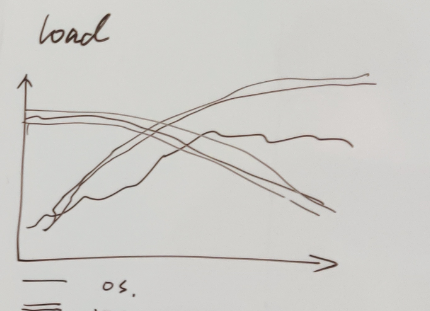 load
os.